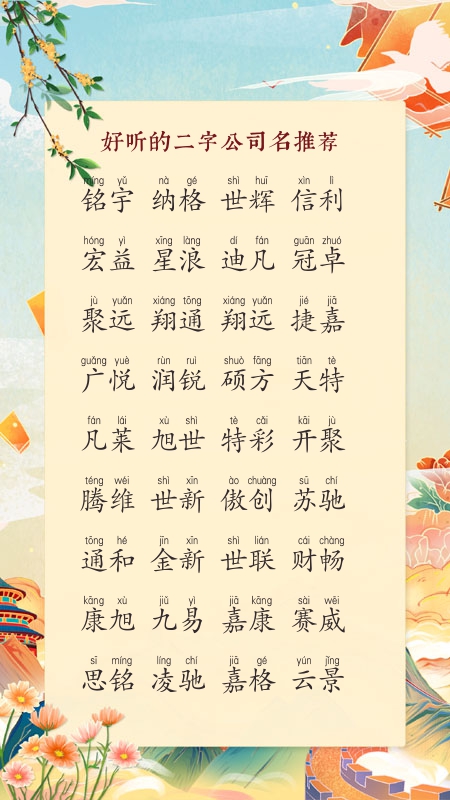 好听的二字公司名推荐
míng yǔ nà gé shì huī xìn lì
铭宇 纳格 世辉 信利
hóng yì xīng làng dí fán guān zhuó
宏益 星浪 迪凡 冠卓
jù yuǎn xiáng tōng xiáng yuǎn jié jiā
聚远 翔通 翔远 捷嘉
guǎng yuè rùn ruì shuò fāng tiān tè
广悦 润锐 硕方 天特
fán lái xù shì tè cǎi kāi jù
凡莱 旭世 特彩 开聚
téng wéi shì xīn ào chuàng sū chí
腾维 世新 傲创 苏驰
tōng hé jīn xīn shì lián cái chàng
通和 金新 世联 财畅
kāng xù jiǔ yì jiā kāng sài wēi
康旭 九易 嘉康 赛威
sī míng líng chí jiā gé yún jǐng
思铭 凌驰 嘉格 云景